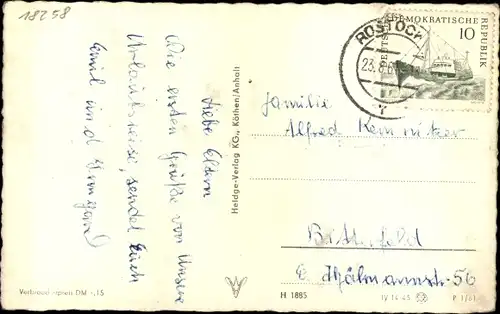 18258
Liebe Eltern
Die ersten Grüße von unsere
Urlaubsreise, sendet Euch
Emil und
Verbraucherpreis DM -,15
Heldge-Verlag KG., Köthen/Anhalt
H 1885
IV 14-45
P 1/61
ROSTOCK
23.8.6
DEUTSCHE
DEMOKRATISCHE
REPUBLIK
10
Familie
Alfred Kemnitzer
Bitterfeld
E. Thälmannstr. 56